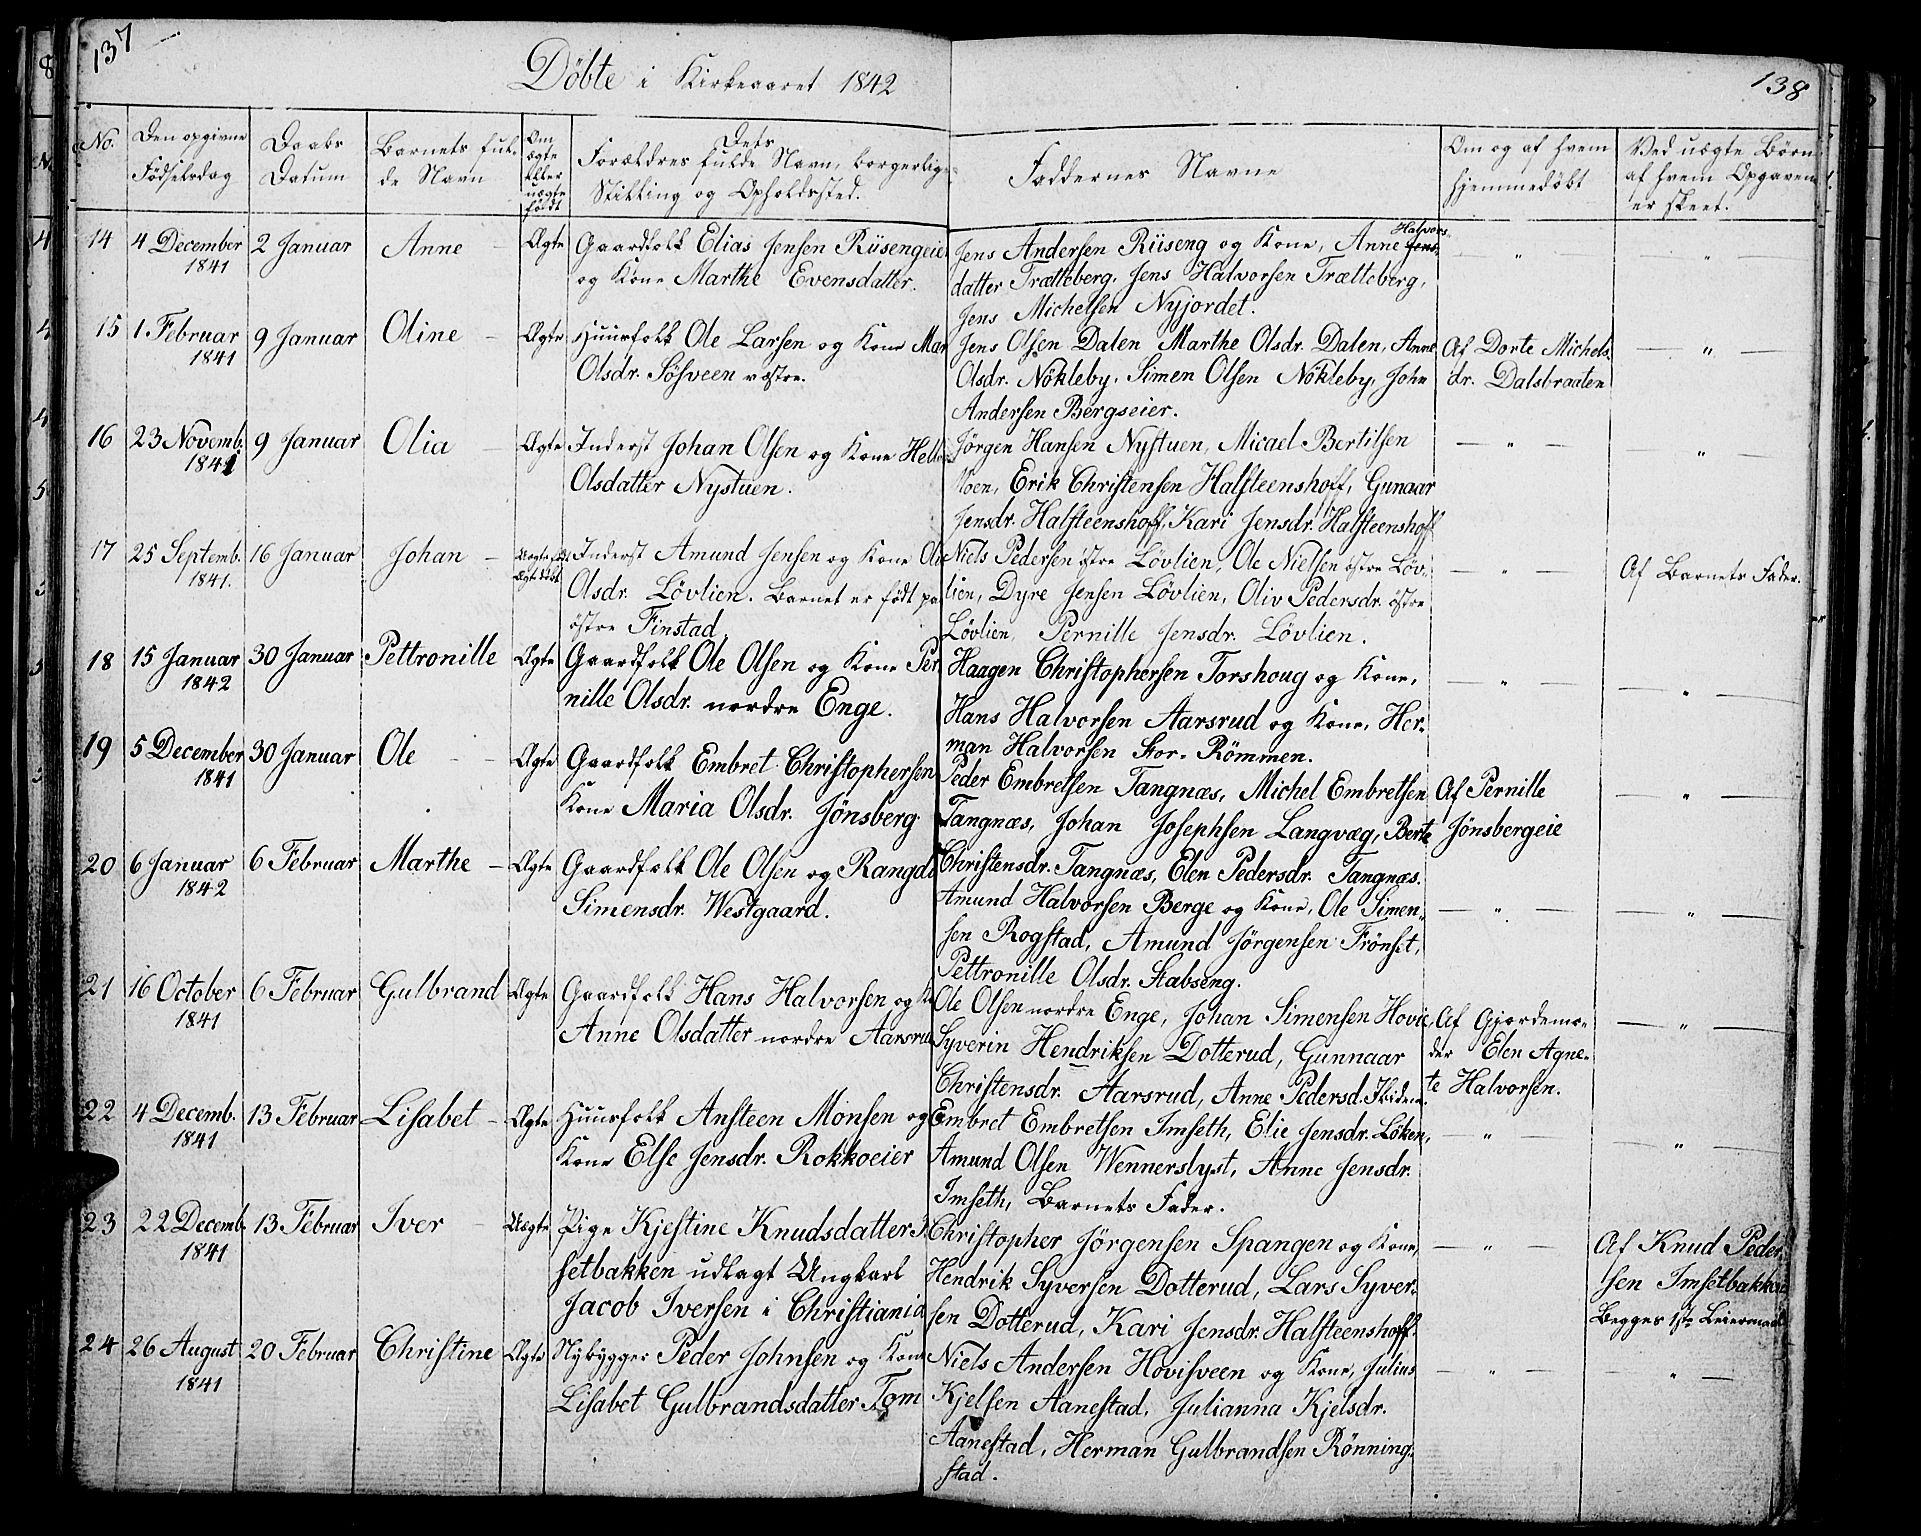 137
138
Döbte i Kirkeaaret 1842
No.
Den opgivne
Födselsdag
Daabs
Datum
Barnets ful-
de Navn
Om
ægte
eller
uægte
födt
Dets
Forældres fulde Navn, borgerlige
Stilling og Opholdssted.
Faddernes Navne
Om og af hvem
hjemmedöbt
Ved uægte Börn
af hvem Opgaven
er skeet.
14 4 December 2 Januar Anne - Ægte Gaardfolk Elias Jensen Riisengeie
1841
og Kone Marthe Evensdatter.
Halvors-
Jens Andersen Riiseng og Kone, Anne Jens-
datter Trætteberg, Jens Halvorsen Trætteberg,
Jens Michelsen Nyjordet.
15 1. Februar 9 Januar Oline - Ægte Huusfolk Ole Larsen og Kone Mar
1841
Olsdr. Sösveen vestre.
Jens Olsen Dalen Marthe Olsdr. Dalen, Anne
Olsdr. Nökleby, Simen Olsen Nökleby, John
Andersen Bergseier.
Af Dorte Michels
dr. Dalsbraaten
16 23 Novemb. 9 Januar Olia - Ægte Inderst Johan Olsen og Kone Hel
1841
Olsdatter Nystuen.
Jörgen Hansen Nystuen, Micael Bertilsen
Moen, Erik Christensen Halsteenshoff, Gunaar
Jensdr. Halsteenshoff, Kari Jensdr. Halsteenshoff
17 25 Septemb. 16 Januar Johan - Uægte
1841.
Ægte döbt
Inderst Amund Jensen og Kone Ol
Olsdr. Lövlien. Barnet er födt paa
östre Finstad.
Niels Pedersen östre Lövlien, Ole Nielsen östre Löv-
lien, Dyre Jensen Lövlien, Oliv Pedersdr. östre
Lövlien, Pernille Jensdr. Lövlien.
Af Barnets Fader.
18 15 Januar 30 Januar Pettronille Ægte Gaardfolk Ole Olsen og Kone Per
1842
nille Olsdr. nordre Enge.
Haagen Christophersen Torshoug og Kone,
Hans Halvorsen Aarsrud og Kone, Her-
man Halvorsen Stor-Römmen.
19 5 December 30 Januar Ole - Ægte Gaardfolk Embret Christophersen
1841
Kone Maria Olsdr. Jönsberg.
Peder Embretsen Tangnæs, Michel Embretsen
Tangnæs, Johan Josephsen Langvæg, Berte
Christensdr. Tangnæs, Elen Pedersdr. Tangnæs.
Af Pernille
Jönsbergeie
20 6 Januar 6 Februar Marthe - Ægte Gaardfolk Ole Olsen og Rangdi
1842
Simensdr. Westgaard.
Amund Halvorsen Berge og Kone, Ole Simen-
sen Rogstad, Amund Jörgensen Frönset,
Pettronille Olsdr. Stabseng.
21 16 October 6 Februar Gulbrand Ægte Gaardfolk Hans Halvorsen og
1841
Anne Olsdatter nordre Aarsrud
Ole Olsen nordre Enge, Johan Simensen Hovie,
Syverin Hendriksen Dotterud, Gunnaar
Christensdr. Aarsrud, Anne Pedersd. Ibidem.
Af Gjordemo-
der Elen Agne-
te Halvorsen.
22 4 Decemb. 13 Februar Lisabet - Ægte Huusfolk Ansteen Monsen og
1841
Kone Else Jensdr. Rokkoeier
Embret Embretsen Imseth, Elie Jensdr. Löken,
Amund Olsen Wennerslyst, Anne Jensdr.
Imseth, Barnets Fader.
23 22 Decemb. 13 Februar Iver - Uægte Pige Kjestine Knudsdatter
1841
setbakken udlagt Ungkarl
Jacob Iversen i Christiania
Christopher Jörgensen Spangen og Kone,
Hendrik Syversen Dotterud, Lars Syver-
sen Dotterud, Kari Jensdr. Halsteenshoff.
Af Knud Peder
sen Imsetbakken
Begges 1ste Leiermaal
24 26 August 20 Februar Christine Ægte Nybygger Peder Johnsen og Kone
1841
Lisabet Gulbrandsdatter Tom
Niels Andersen Hovisveen og Kone, Julius
Kjelsen Aanestad, Julianna Kjelsdr.
Aanestad, Herman Gulbrandsen Rönning-
stad.